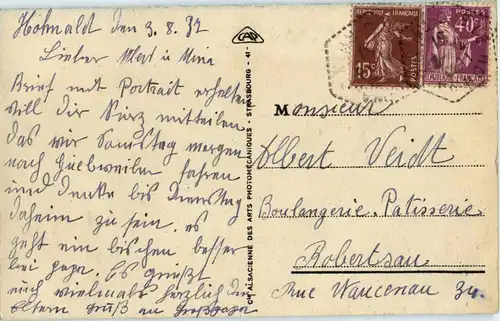 Hohwald den 3.8.32
Lieber Albert u Mina
Brief mit Portrait erhalten
will dir kurz mitteilen
das wir Samstag morgen
nach Guebweiler fahren
und denke bis Dienstag
daheim zu sein. es
geht ein bischen besser
bei papa. Es grüßt
noch vielmals herzlich die
Eltern Gruß an
CAP
Cie ALSACIENNE DES ARTS PHOTOMÉCANIQUES - STRASBOURG - 41 -
15c
POSTES
40c
Monsieur
Albert Veidt
Boulangerie-Patisserie
Robertsau
Rue Wancenau 34.